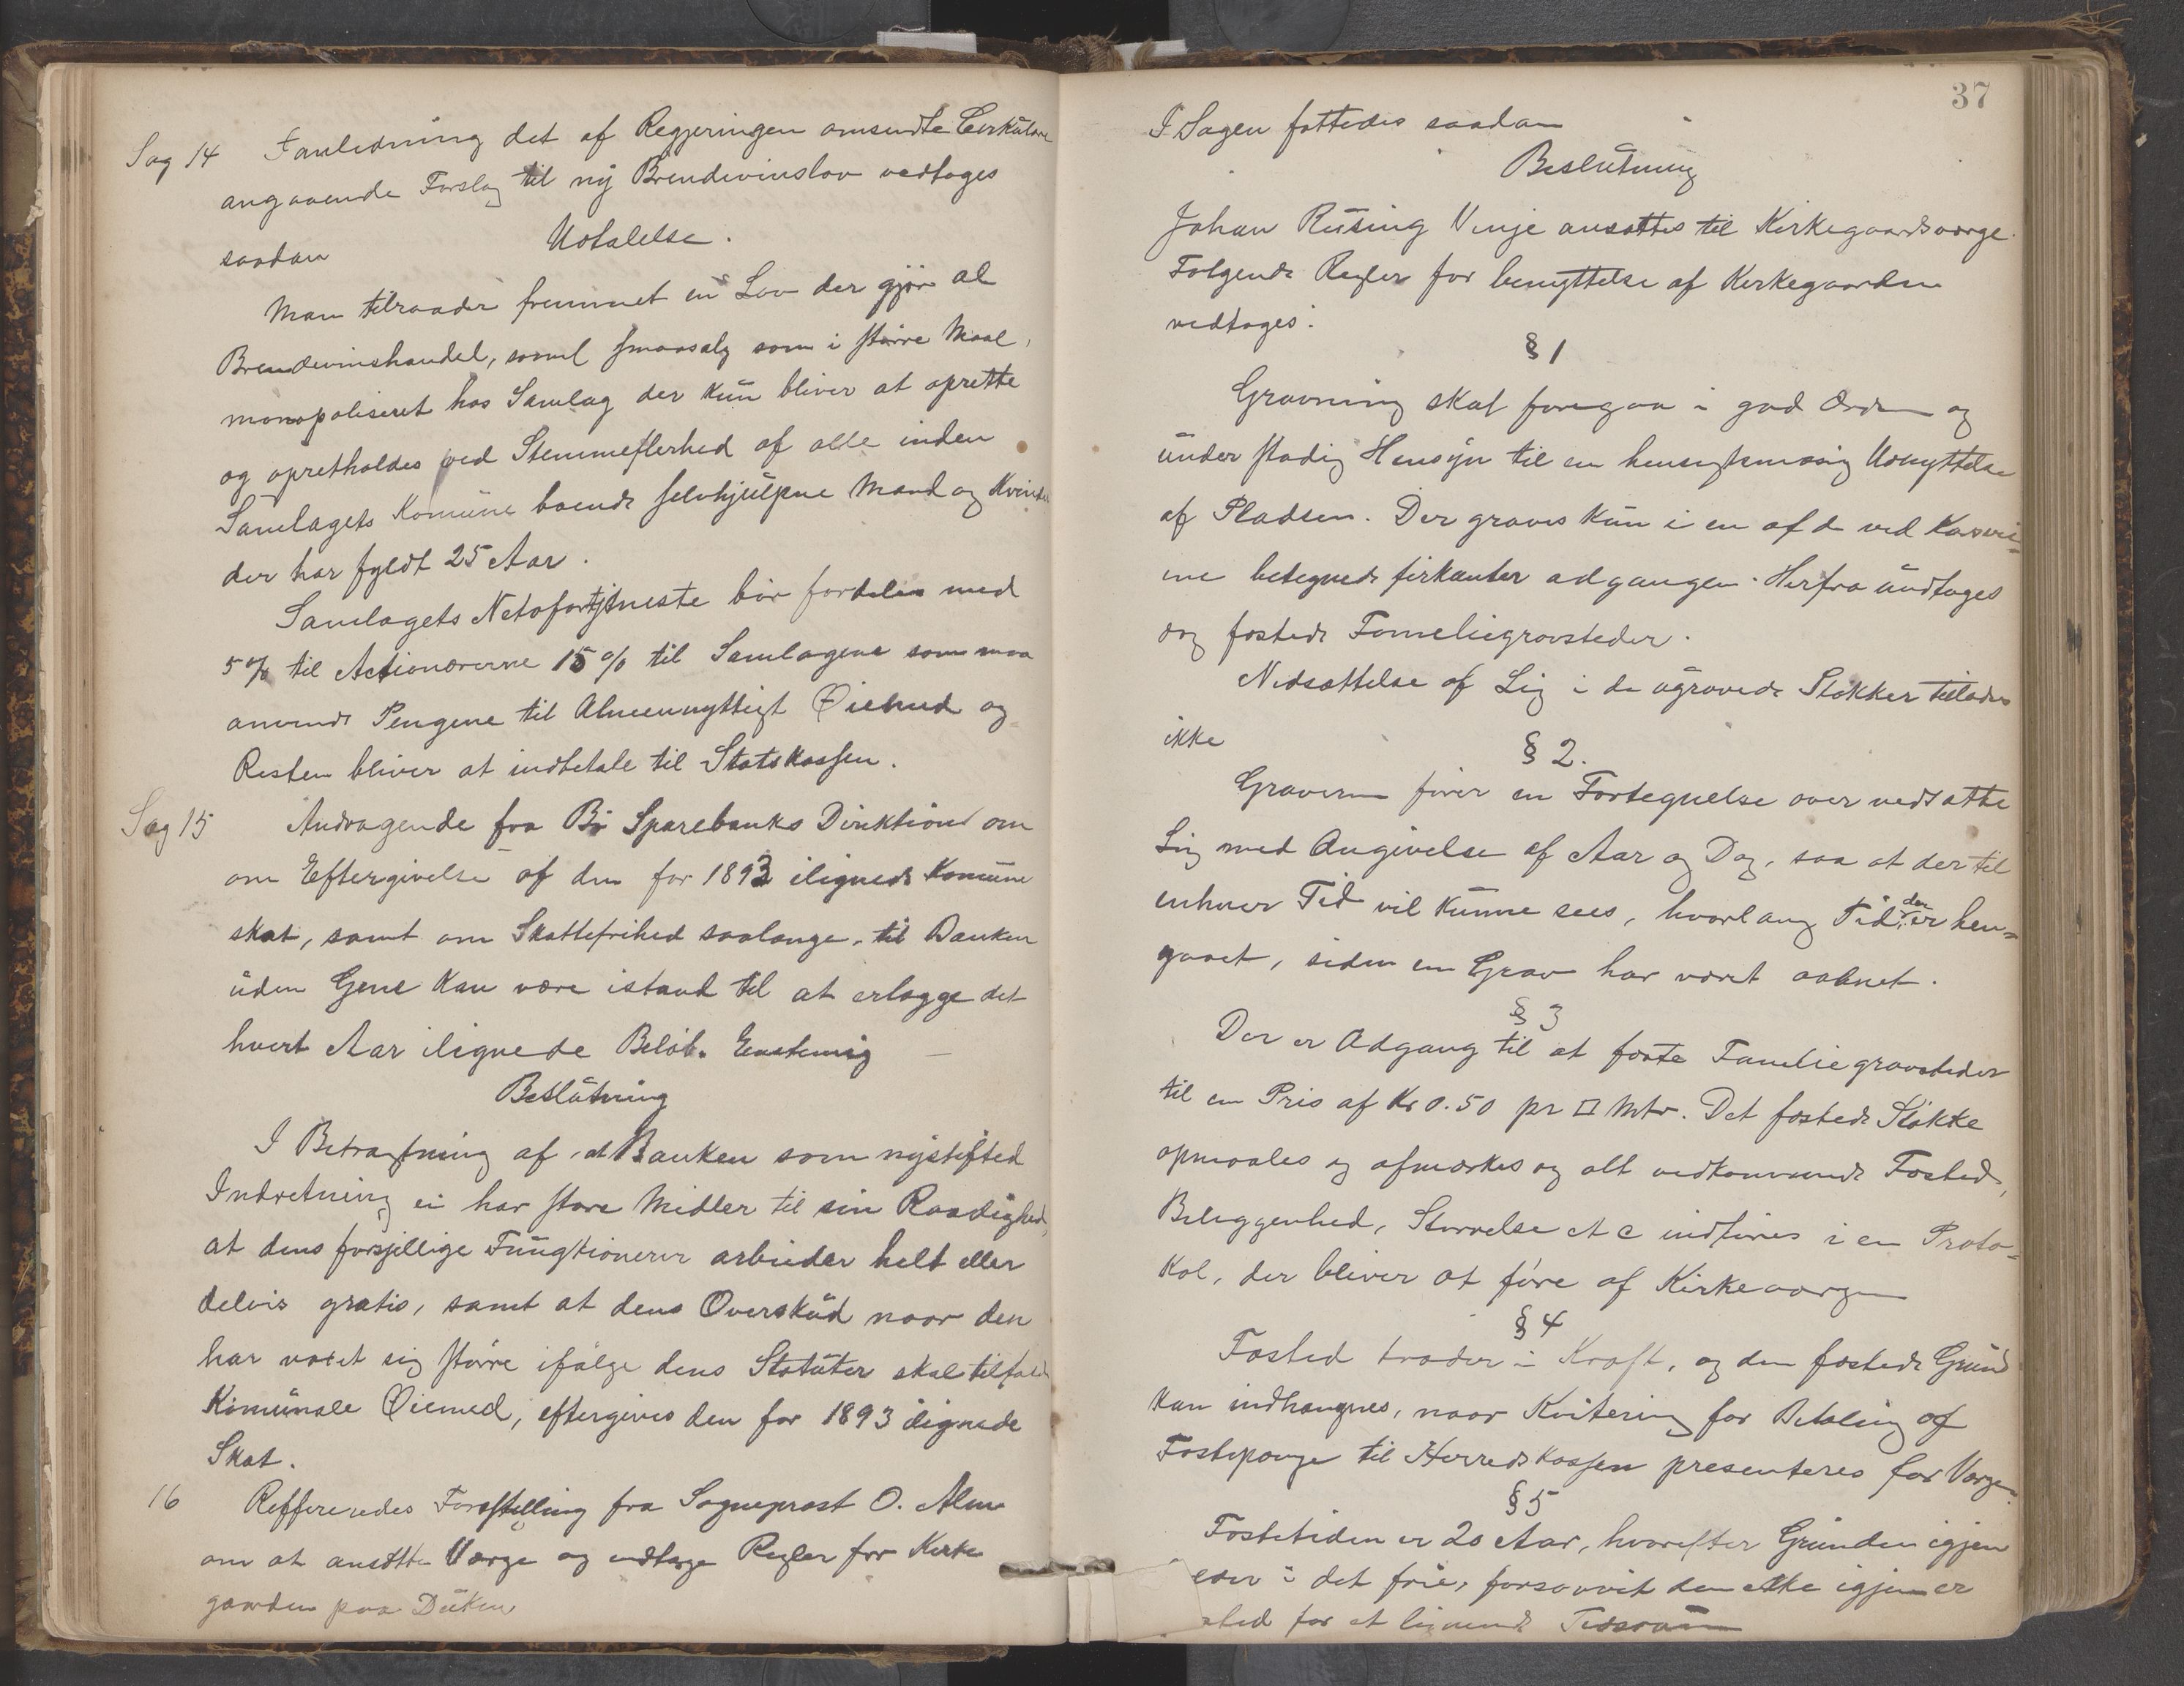 Sag 14 I anledning det af Regjeringen omsendte Cirkulære
angaaende Forslag til ny Brendevinslov vedtoges
saadan Udtalelse.
Man tilraader fremmet en Lov der gjør al
Brendevinshandel, saavel smaasalg som i større Maal,
monopoliseret hos Samlag der kun bliver at oprette
og opretholdes ved Stemmeflerhed af alle inden
Samlagets Komune boende selvhjulpne Mænd og Kvinder
der har fyldt 25 Aar.
Samlagets Netofortjeneste bør fordeles med
5% til Actionærerne 15% til Samlagene som maa
anvende Pengene til Almennyttigt Øiemed og
Resten bliver at indbetale til Statskassen.
Sag 15 Andragende fra Bø Sparebanks Direktion om
om Eftergivelse af den for 1893 ilignede Komune
skat, samt om Skattefrihed saalænge, til Banken
uden Gene kan være istand til at erlægge det
hvert Aar ilignede Beløb. Enstemig
Beslutning
I Betragtning af, at Banken som nystifted
Indretning ei har store Midler til sin Raadighed,
at dens forsjellige Fungtionerer arbeider helt eller
delvis gratis, samt at dens Overskud naar den
har voxet sig større ifølge dens Statuter skal tilfalde
Komunale Øiemed, eftergives den for 1893 ilignede
Skat.
16 Reffereredes Forestilling fra Sogneprest O. Alme
om at ansætte Værge og vedtage Regler for Kirke
gaarden paa Døken
37
I Sagen fattedes saadan
Beslutning
Johan Rusing Vinje ansættes til Kirkegaardsværge.
Følgende Regler for benyttelse af Kirkegaarden
vedtoges:
§ 1
Gravning skal foregaa i god Orden og
under stadig Hensyn til en hensigtsmæsig Udnyttelse
af Pladsen. Der graves kun i en af de ved
betegnede firkanter adgangen. Herfra undtages
dog festede Fameliegravsteder.
Nedsættelse af Lig i de ugravede Støkker tillades
ikke
§ 2.
Graveren fører en Fortegnelse over nedsatte
Lig med Angivelse af Aar og Dag, saa at der til
enhver Tid vil kunne sees, hvorlang Tid der er hen=
gaaet, siden en Grav har været aabnet.
§ 3
Der er Adgang til at fæste Familiegravsteder
til en Pris af Kr 0.50 pr □ Mtr. Det fæstede Støkke
opmaales og afmærkes og alt vedkommende Fæsted,
Beliggenhed, Størrelse etc indføres i en Proto=
kol, der bliver at føre af Kirkeværgen
§ 4
Fæsted træder i Kraft, og den fæstede Grund
kan indhægnes, naar Kvitering for Betaling af
Fæstepenge til Herredskassen presenteres for Værgen.
§ 5
Fæstetiden er 20 Aar, hvorefter Grunden igjen
er i det frie, forsaavit den ikke igjen er
sted for et lignende Tidsrum